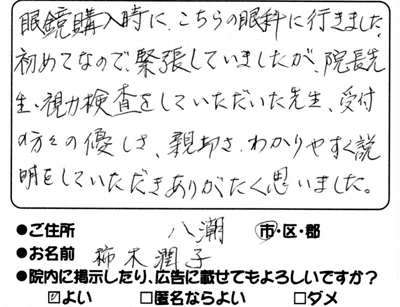 眼鏡購入時に、こちらの眼科に行きました。
初めてなので、緊張していましたが、院長先
生、視力検査をしていただいた先生、受付
の方々の優しさ、親切さ、わかりやすく説
明をしていただきありがたく思いました。
●ご住所 八潮 市・区・郡
●お名前 柿木潤子
●院内に掲示したり、広告に載せてもよろしいですか?
☑よい □匿名ならよい □ダメ